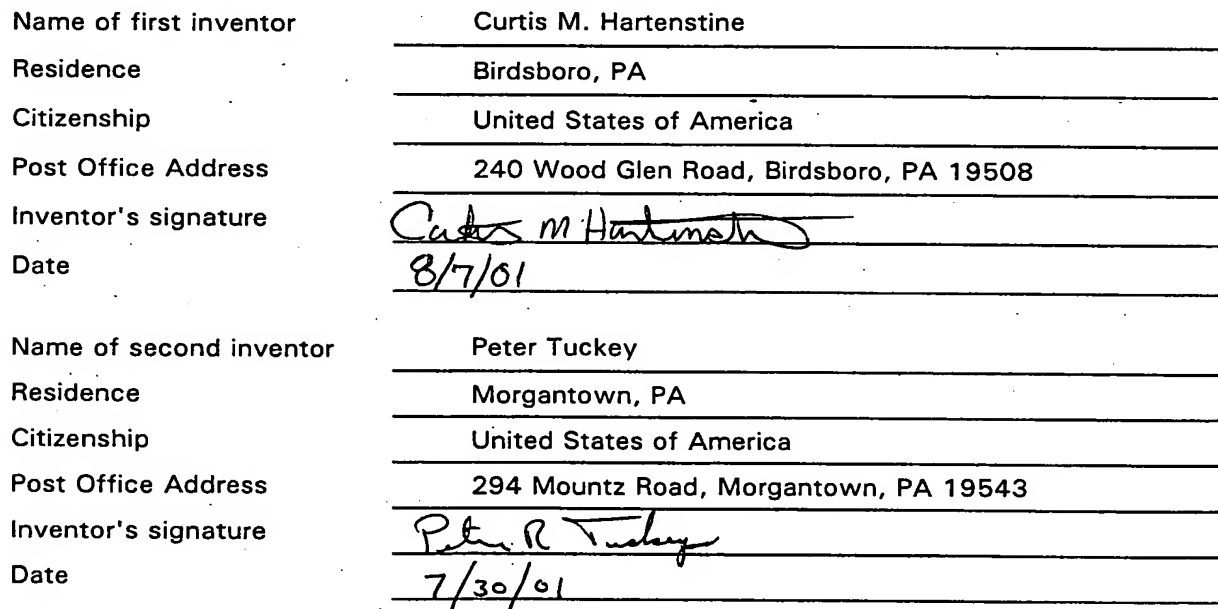 Name of first inventor Curtis M. Hartenstine
Residence Birdsboro, PA
Citizenship United States of America
Post Office Address 240 Wood Glen Road, Birdsboro, PA 19508
Inventor's signature Curtis M Hartenstine
Date 8/7/01
Name of second inventor Peter Tuckey
Residence Morgantown, PA
Citizenship United States of America
Post Office Address 294 Mountz Road, Morgantown, PA 19543
Inventor's signature Peter R Tuckey
Date 7/30/01